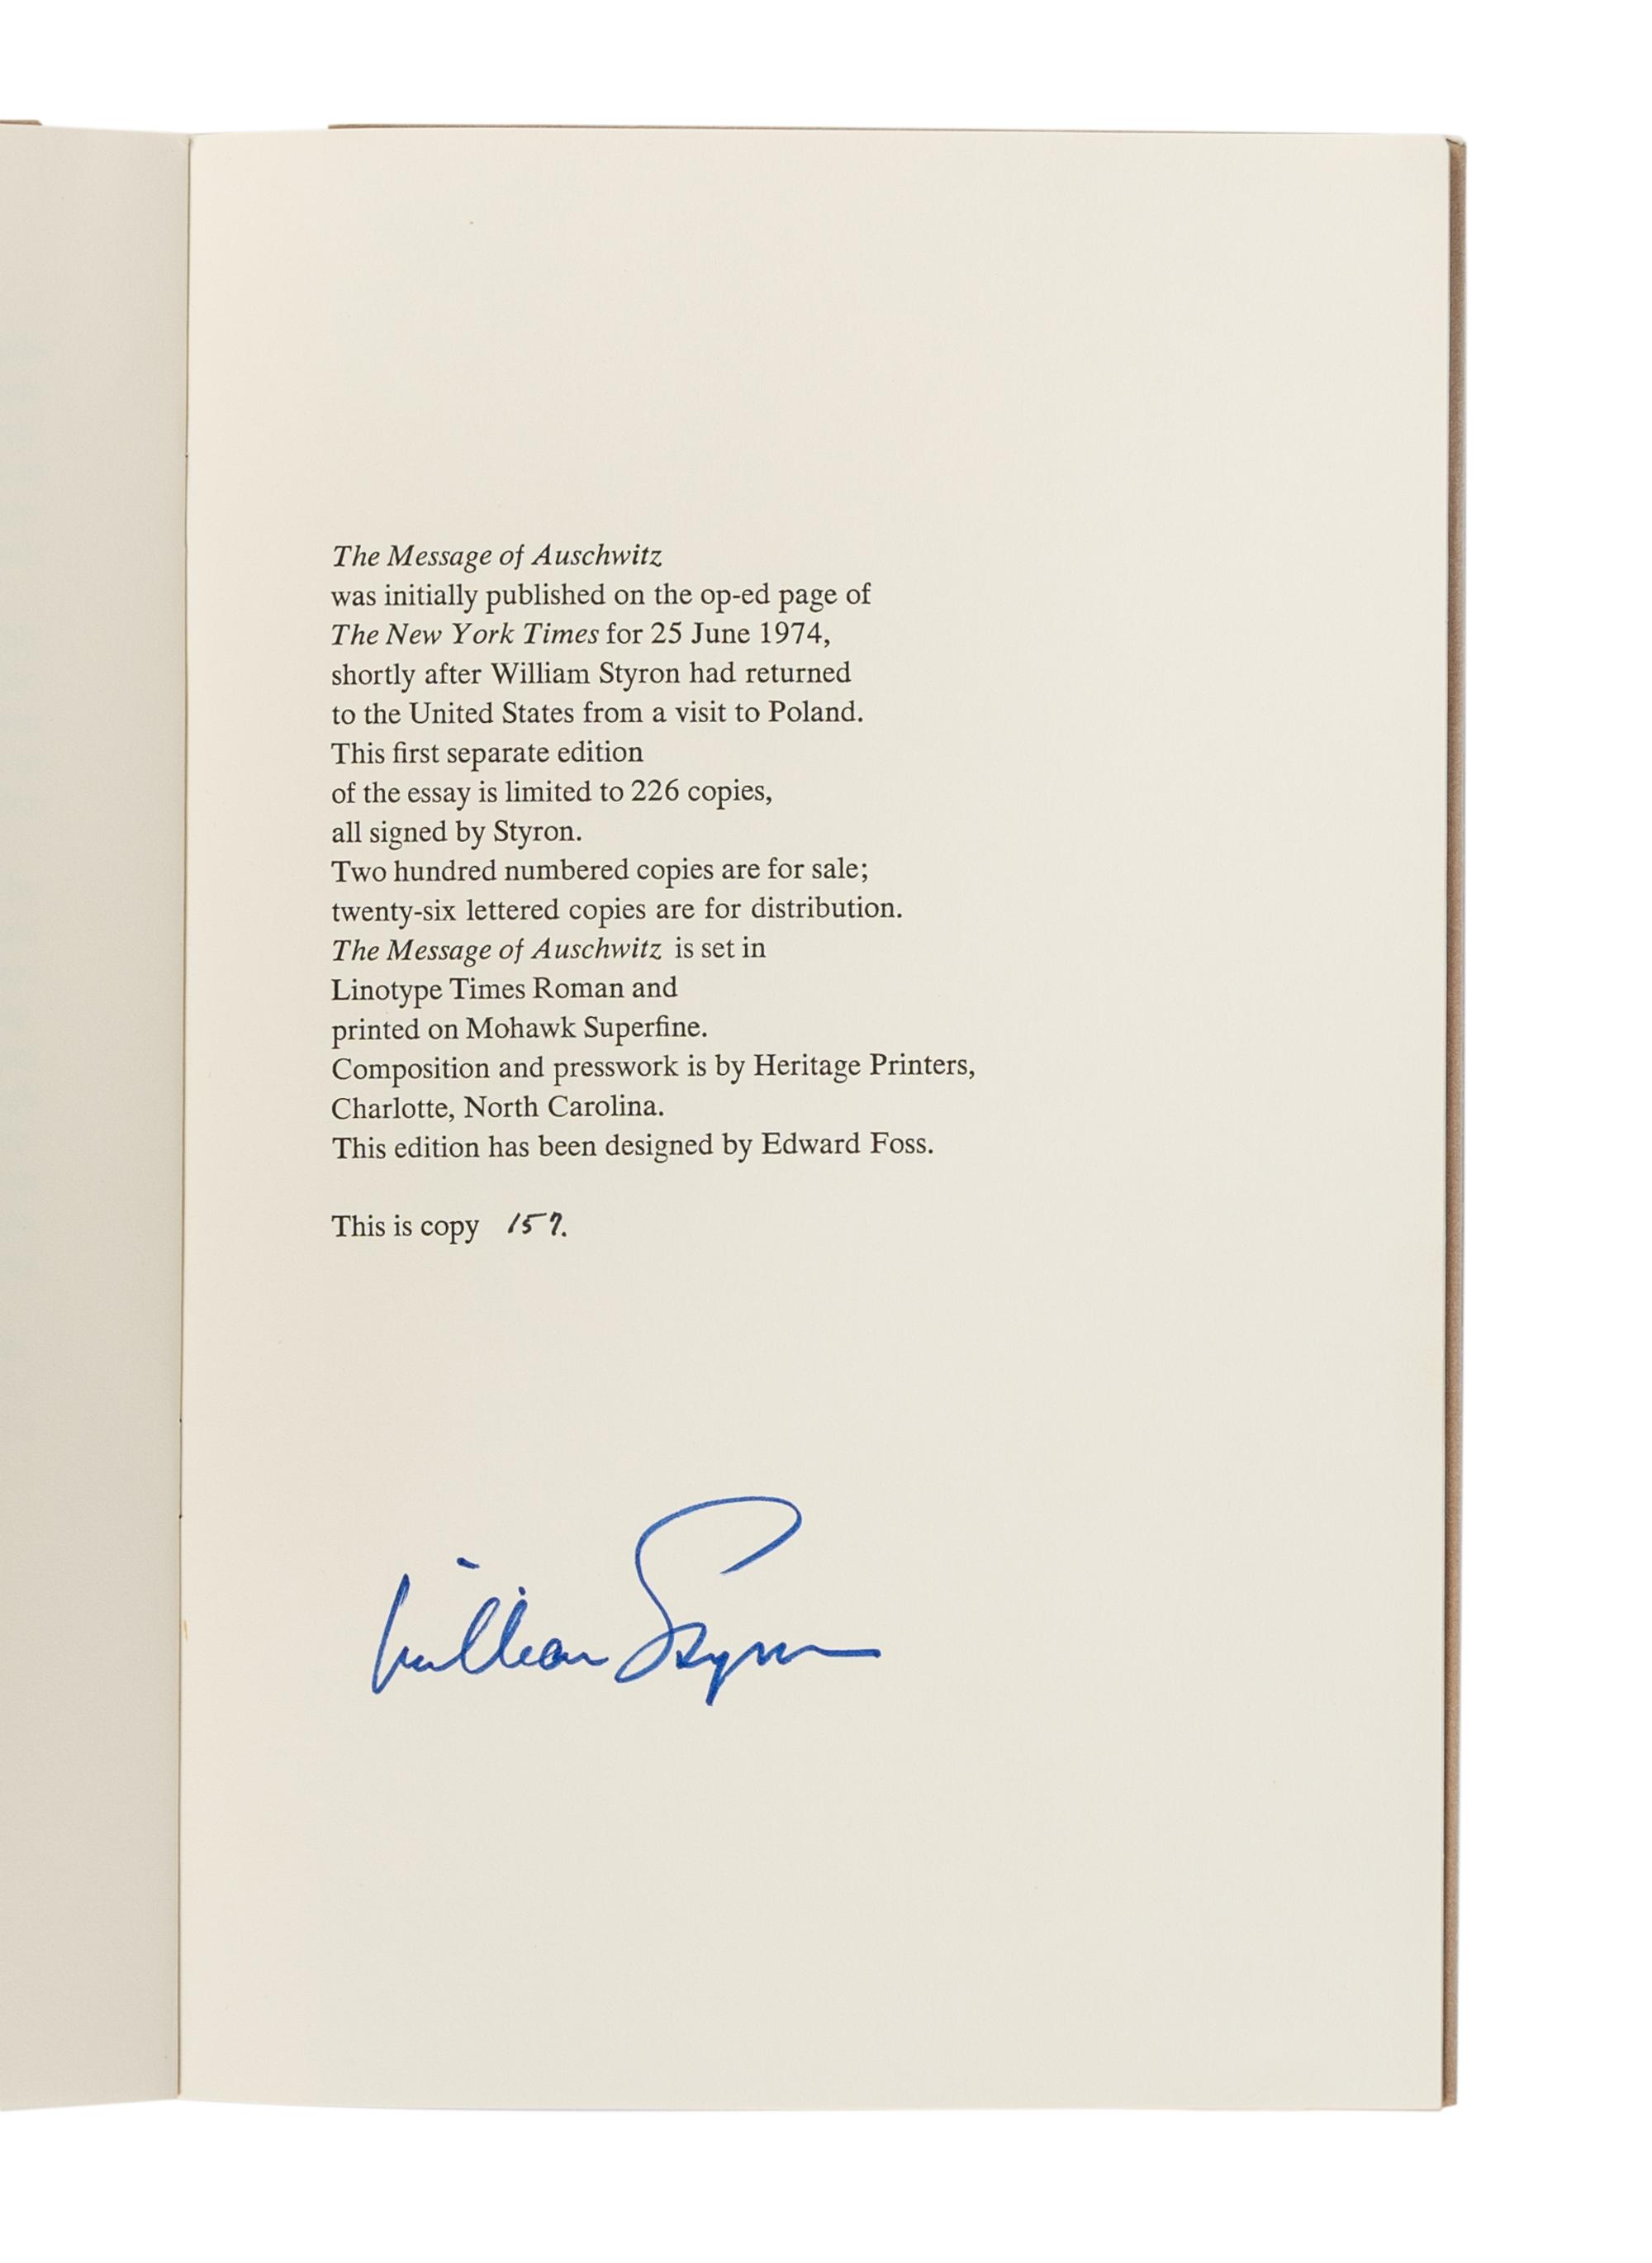 The Message of Auschwitz
was initially published on the op-ed page of
The New York Times for 25 June 1974,
shortly after William Styron had returned
to the United States from a visit to Poland.
This first separate edition
of the essay is limited to 226 copies,
all signed by Styron.
Two hundred numbered copies are for sale;
twenty-six lettered copies are for distribution.
The Message of Auschwitz is set in
Linotype Times Roman and
printed on Mohawk Superfine.
Composition and presswork is by Heritage Printers,
Charlotte, North Carolina.
This edition has been designed by Edward Foss.
This is copy 157.
William Styron